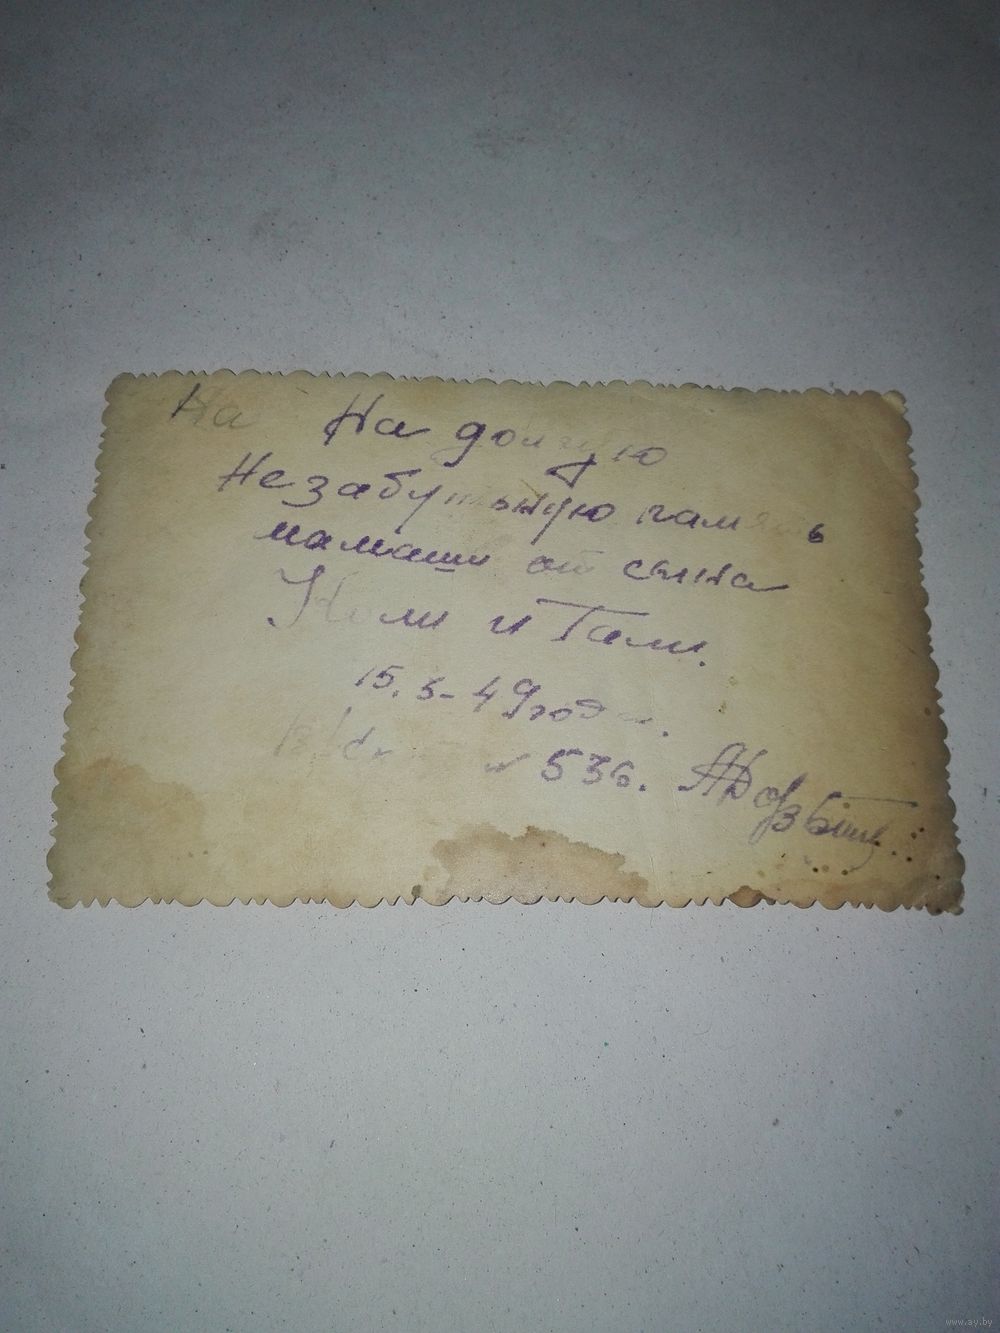 На На долгую
Незабутьную память
мамаши от сына
Коли и Гали.
15.5-49 года.
536.
www.ay.by